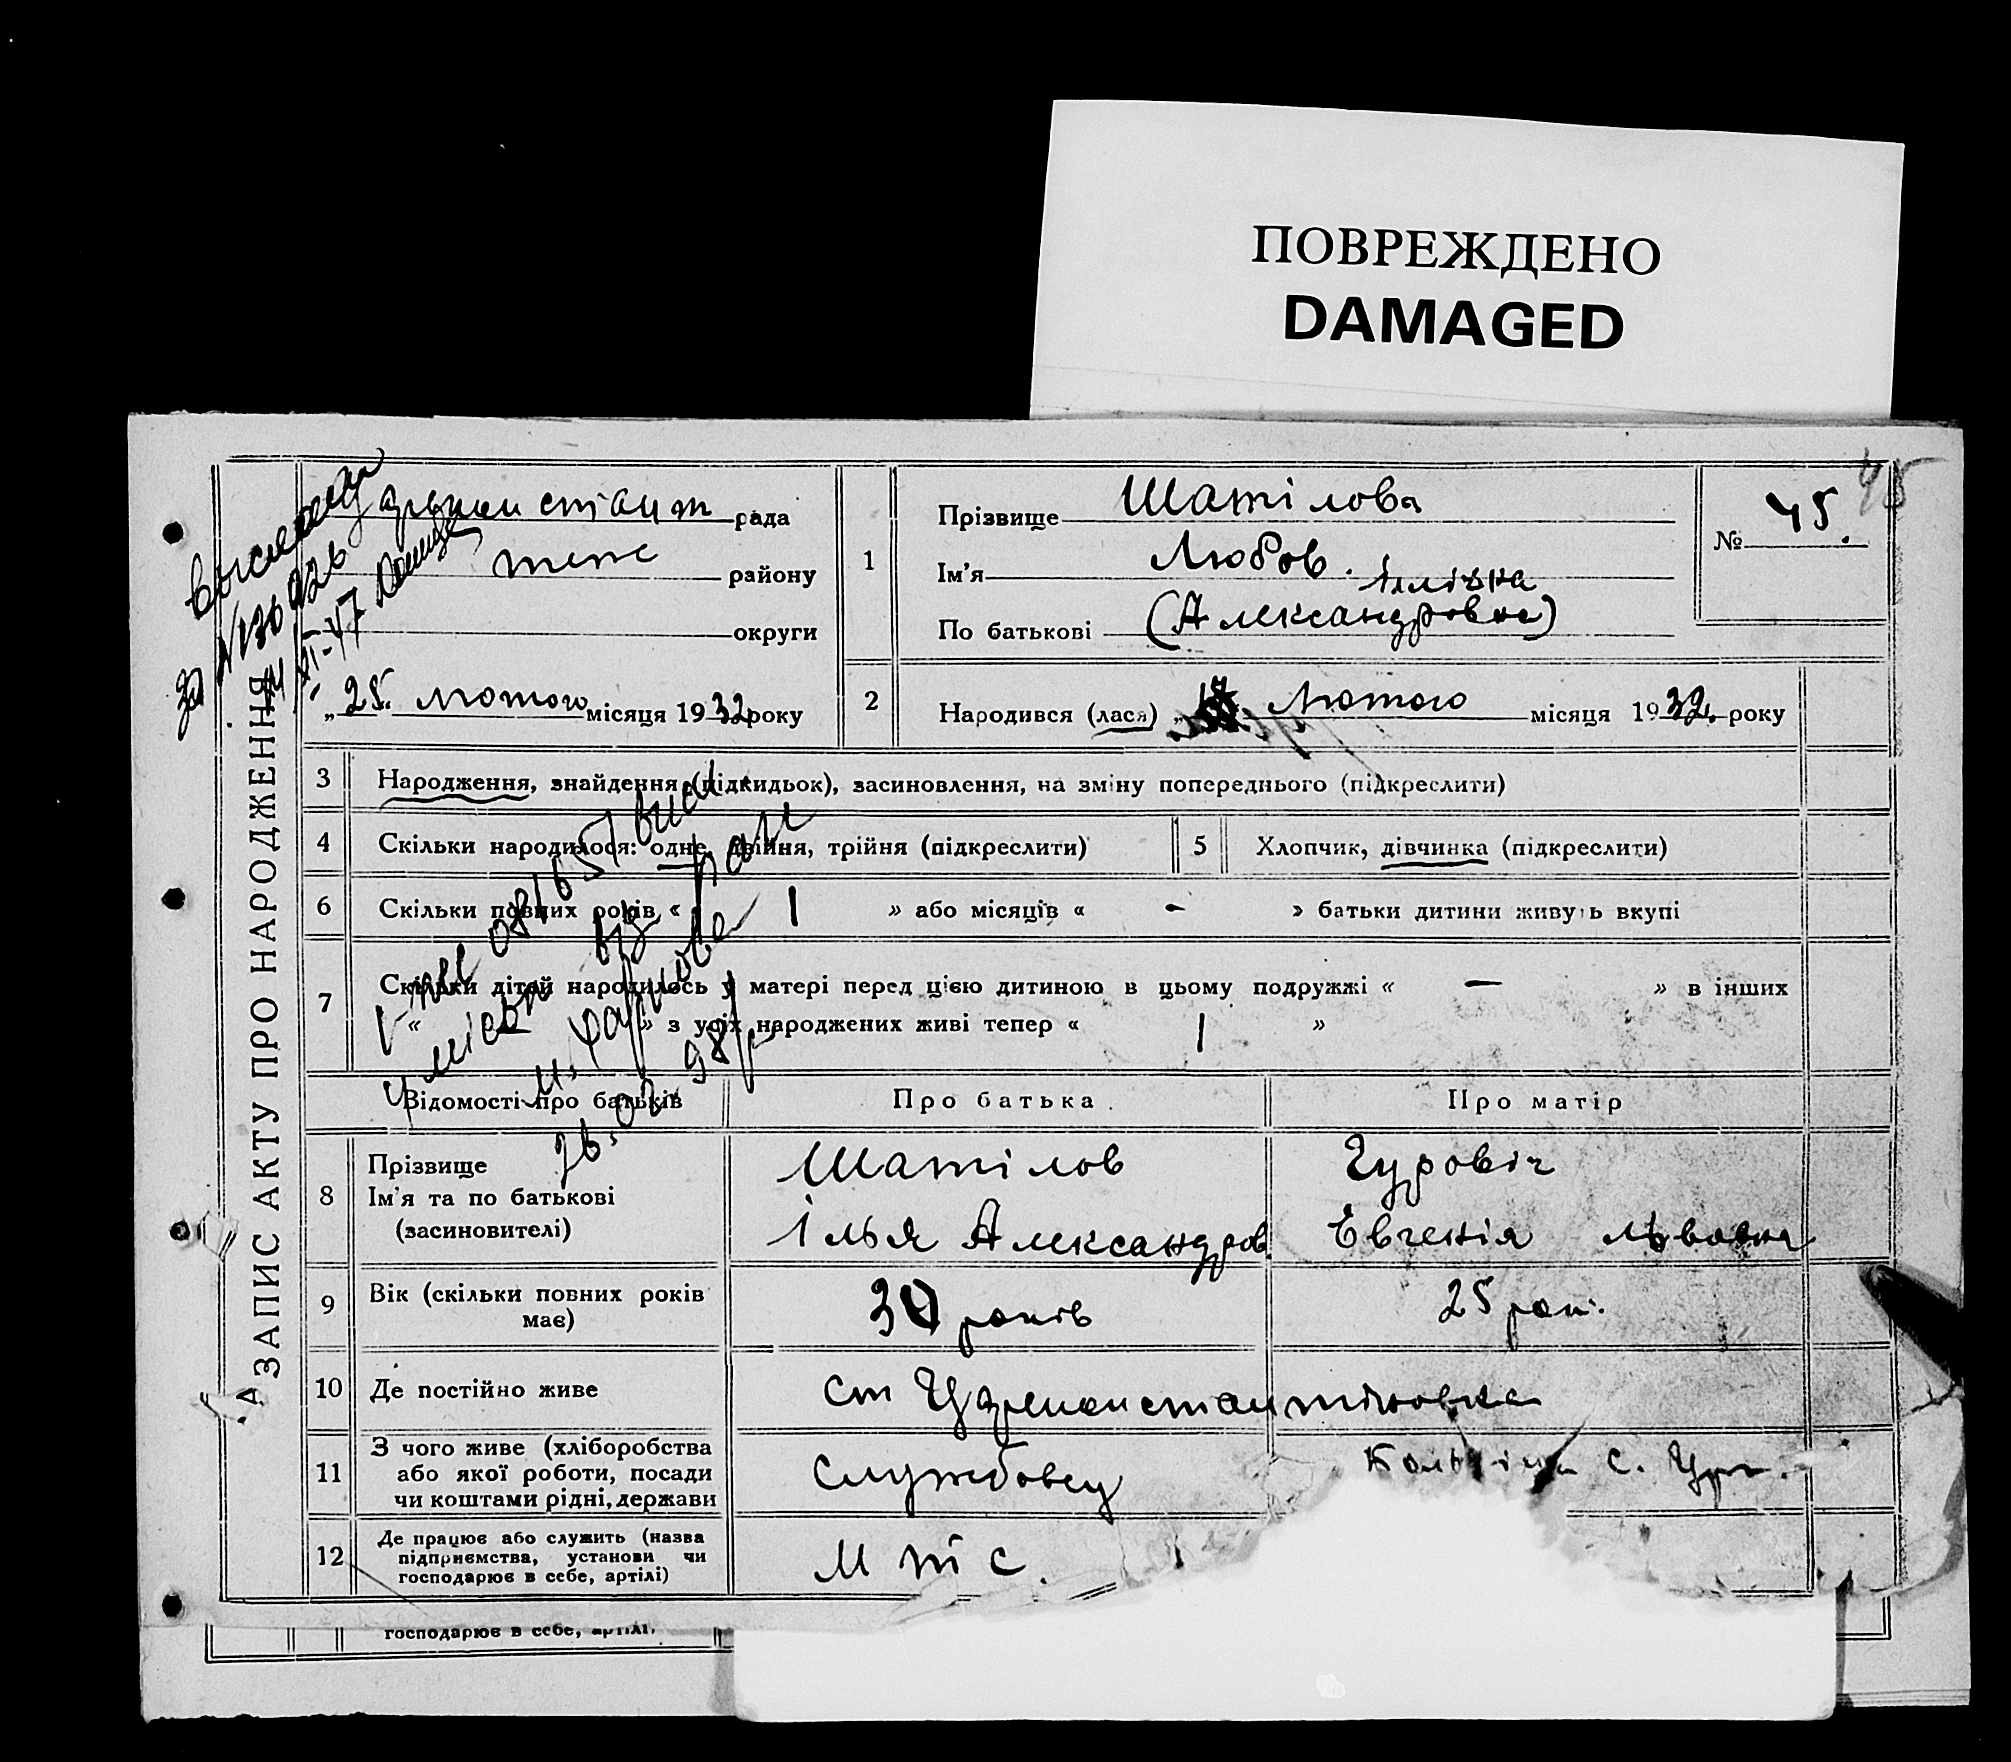 ПОВРЕЖДЕНО
DAMAGED
45
ЗАПИС АКТУ ПРО НАРОДЖЕННЯ
рада
теж району
округи
„25“ лютого місяця 1932 року
1
Прізвище Шатілова
Ім'я Любов.
Іллівна
По батькові (Александровна)
№ 45.
2
Народився (лася) „ лютого місяця 1932. року
3 Народження, знайдення (підкидьок), засиновлення, на зміну попереднього (підкреслити)
4 Скільки народилося: одне, двійня, трійня (підкреслити)
5 Хлопчик, дівчинка (підкреслити)
6 Скільки повних років « 1 » або місяців « - » батьки дитини живуть вкупі
7 Скільки дітей народилось у матері перед цією дитиною в цьому подружжі « — » в інших
« — » з усіх народжених живі тепер « 1 »
м. Харкова
26.02.98р
Відомості про батьків
Про батька
Про матір
8
Прізвище
Ім'я та по батькові
(засиновителі)
Шатілов
Ілья Александров.
Гуровіч
Евгенія Львовна
9
Вік (скільки повних років
має)
30 років
25 рок.
10 Де постійно живе
ст Цареконстантіновка
11
З чого живе (хліборобства
або якої роботи, посади
чи коштами рідні, держави
службовец
с.
12
Де працює або служить (назва
підприємства, установи чи
господарює в себе, артілі)
М т с.
господарює в себе, артілі,